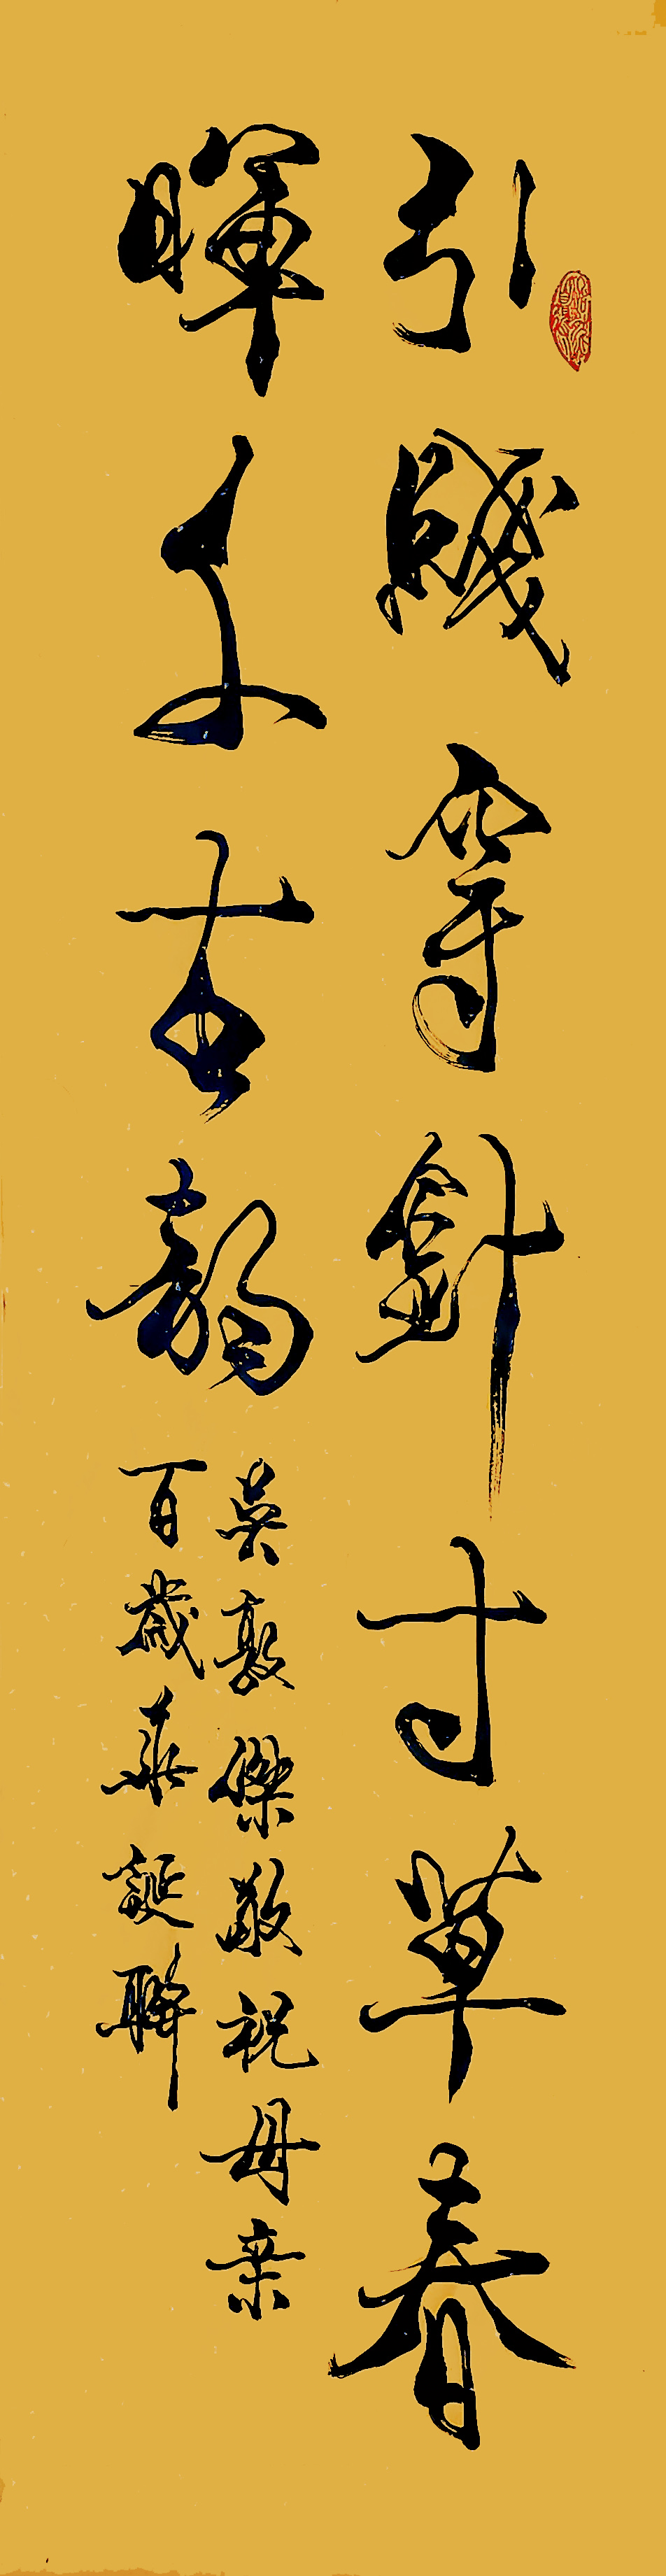 引綫穿針寸草春
暉千古韵
吳敦傑敬祝母亲
百歲華誕聯